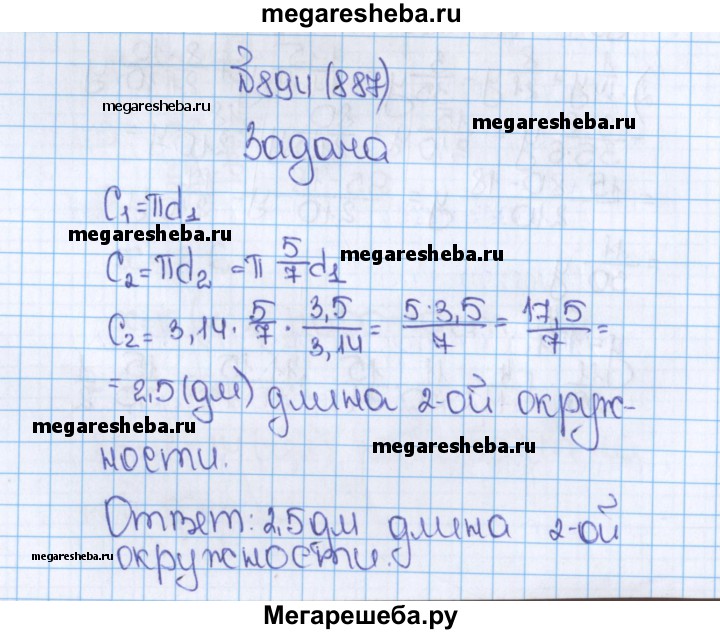 megaresheba.ru
№894 (887)
megaresheba.ru
megaresheba.ru
Задача
C₁=πd₁
megaresheba.ru
megaresheba.ru
C₂=πd₂ =π 5/7 d₁
C₂= 3,14 · 5/7 · 3,5/3,14 = 5·3,5/7 = 17,5/7 =
= 2,5 (дм) длина 2-ой окруж-
megaresheba.ru
megaresheba.ru
ности.
Ответ: 2,5 дм длина 2-ой
megaresheba.ru
окружности.
Мегарешеба.ру